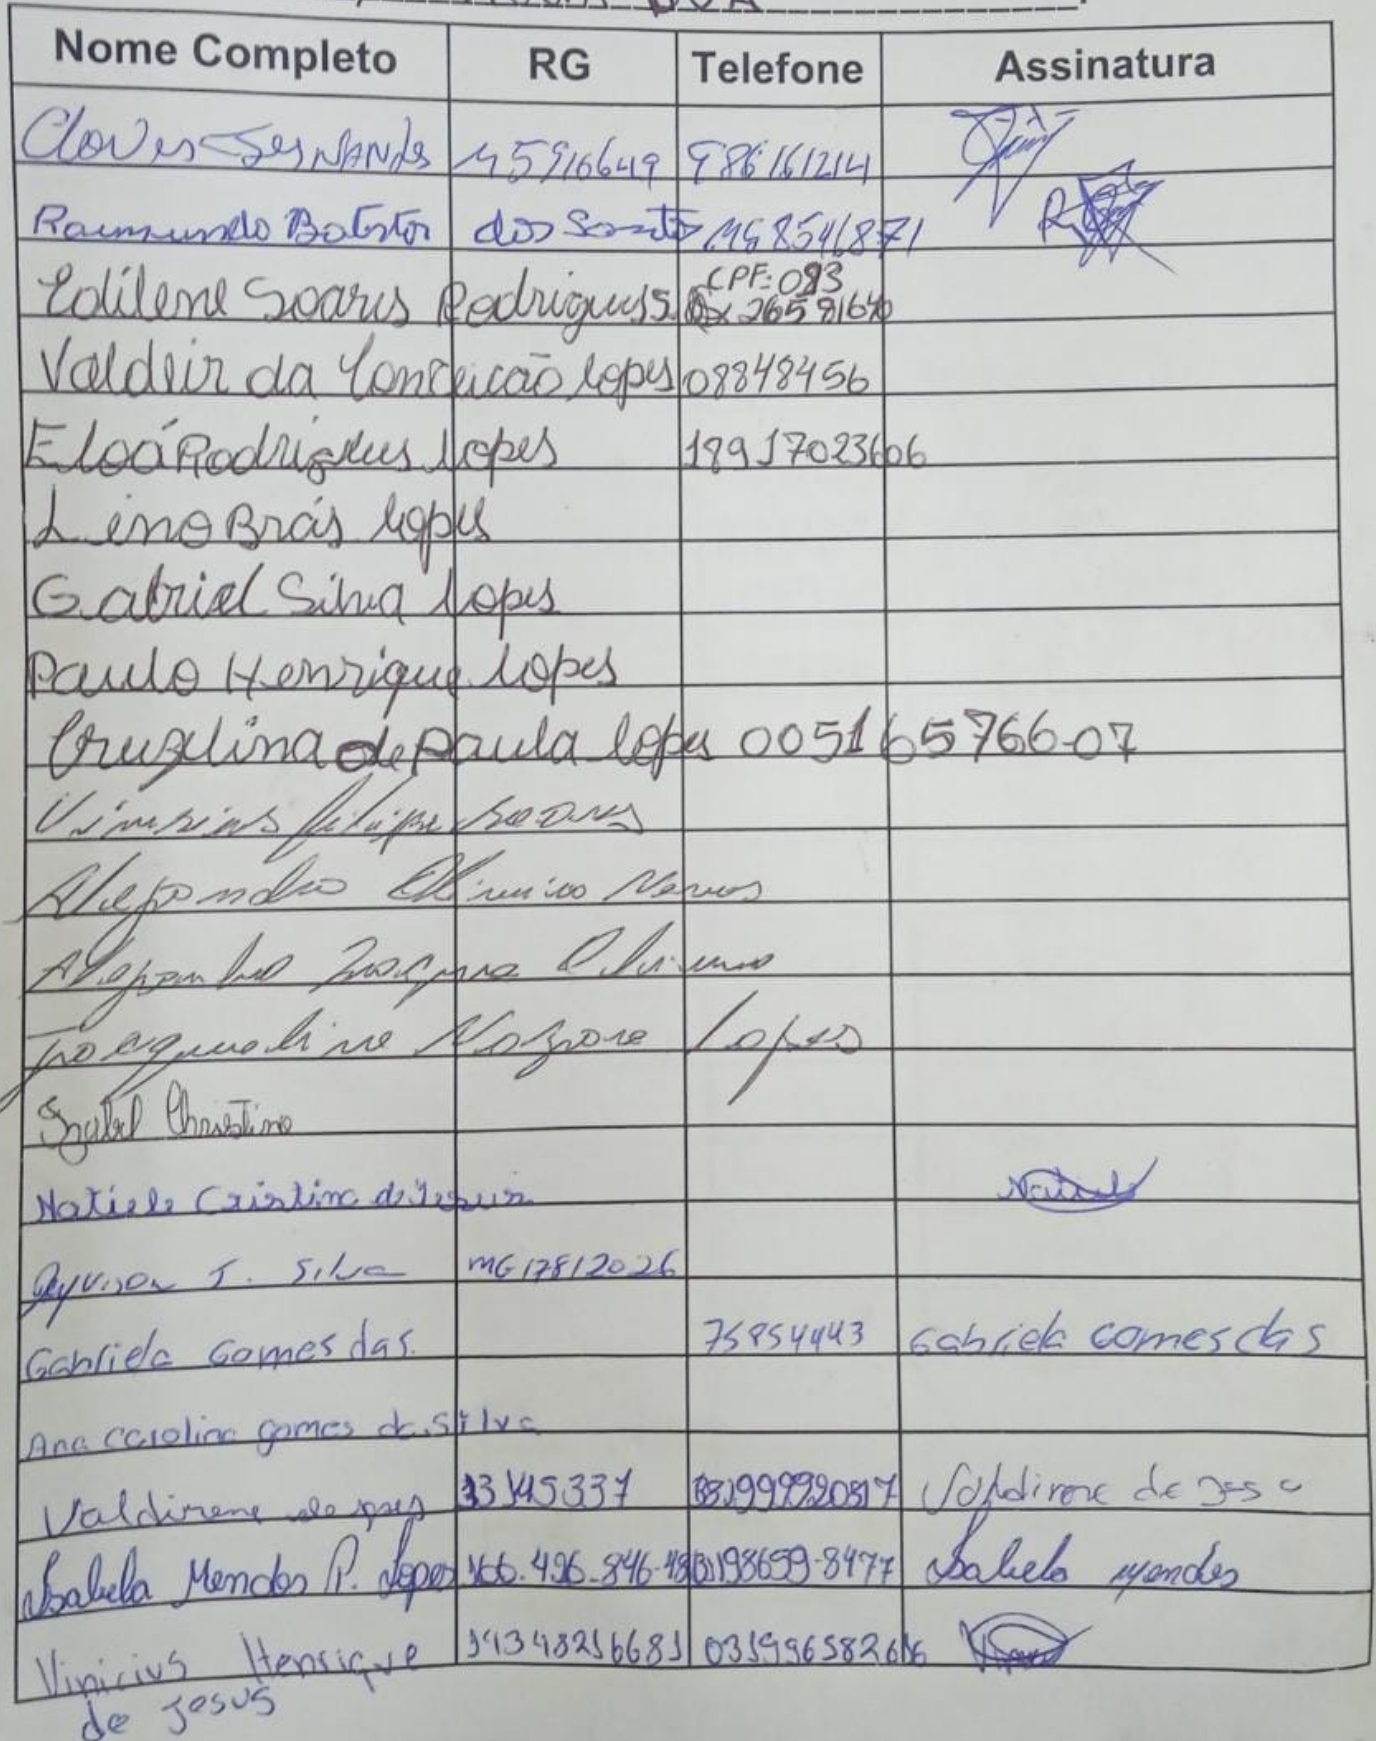 Nome Completo RG Telefone Assinatura
Cloves Fernandes 45916649 986161214
Raimundo Batista dos Santos MG8546871
CPF: 093
Edilene Soares Rodrigues 26581640
Valdeir da Conceicão lopes 08848456
Eloá Rodrigues lopes 18917023606
Lino Brás lopes
Gabriel Silva lopes
Paulo Henrique lopes
Cruzelina de Paula lopes 005165766-07
Vinicius filipe Soares
Alejandro Neves
Alejandro
Lopes
Izabel Christina
Natiele Cristina de Jesus Natiele
Deyvison J. Silva MG17812026
Gabriela Gomes das. 75854443 Gabriela Gomes das
Ana Carolina gomes da Silva
Valdirene de Jesus 13145337 Valdirene de Jesu
Isabela Mendes P. Lopes 166.496.846-48 (31)98659-8477 Isabela Mendes
Vinicius Henrique 14348256681
de Jesus